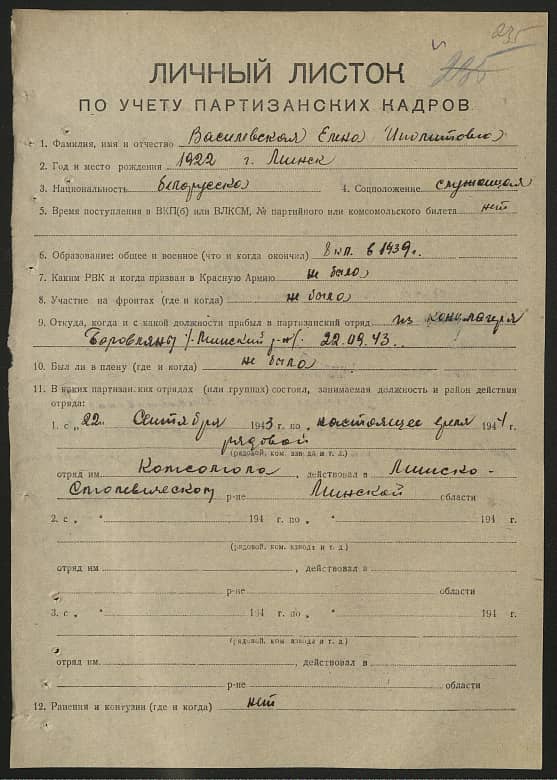 235
235
ЛИЧНЫЙ ЛИСТОК
ПО УЧЕТУ ПАРТИЗАНСКИХ КАДРОВ
1. Фамилия, имя и отчество Василевская Елена Иполитовна
2. Год и место рождения 1922 г. Минск
3. Национальность белоруска 4. Соцположение служащая
5. Время поступления в ВКП(б) или ВЛКСМ, № партийного или комсомольского билета нет
6. Образование: общее и военное (что и когда окончил) 8 кл. в 1939г.
7. Каким РВК и когда призван в Красную Армию не была
8. Участие на фронтах (где и когда) не была
9. Откуда, когда и с какой должности прибыл в партизанский отряд из концлагеря
Боровляны /Минский р-н/ 22.09.43.
10. Был ли в плену (где и когда) не была
11. В каких партизанских отрядах (или группах) состоял, занимаемая должность и район действия
отряда:
1. с „22“ Сентября 1943 г. по настоящее время 1944 г.
рядовой
(рядовой, ком. взвода и т. д.)
отряд им. Комсомола, действовал в Минско-
Столевическом р-не Минской области
2. с „ “ 194 г. по „ “ 194 г.
(рядовой, ком. взвода и т. д.)
отряд им. , действовал в
р-не области
3. с „ “ 194 г. по „ “ 194 г.
(рядовой, ком. взвода и т. д.)
отряд им. , действовал в
р-не области
12. Ранения и контузии (где и когда) нет